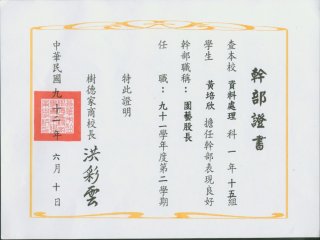 幹部證書
查本校 資料處理 科 一 年 十五 組
學生 黃培欣 擔任幹部表現良好
幹部職稱：園藝股長
任 職：九十一學年度第二學期
特此證明
樹德家商校長 洪彩雲
中華民國 九十二 年 六 月 十 日